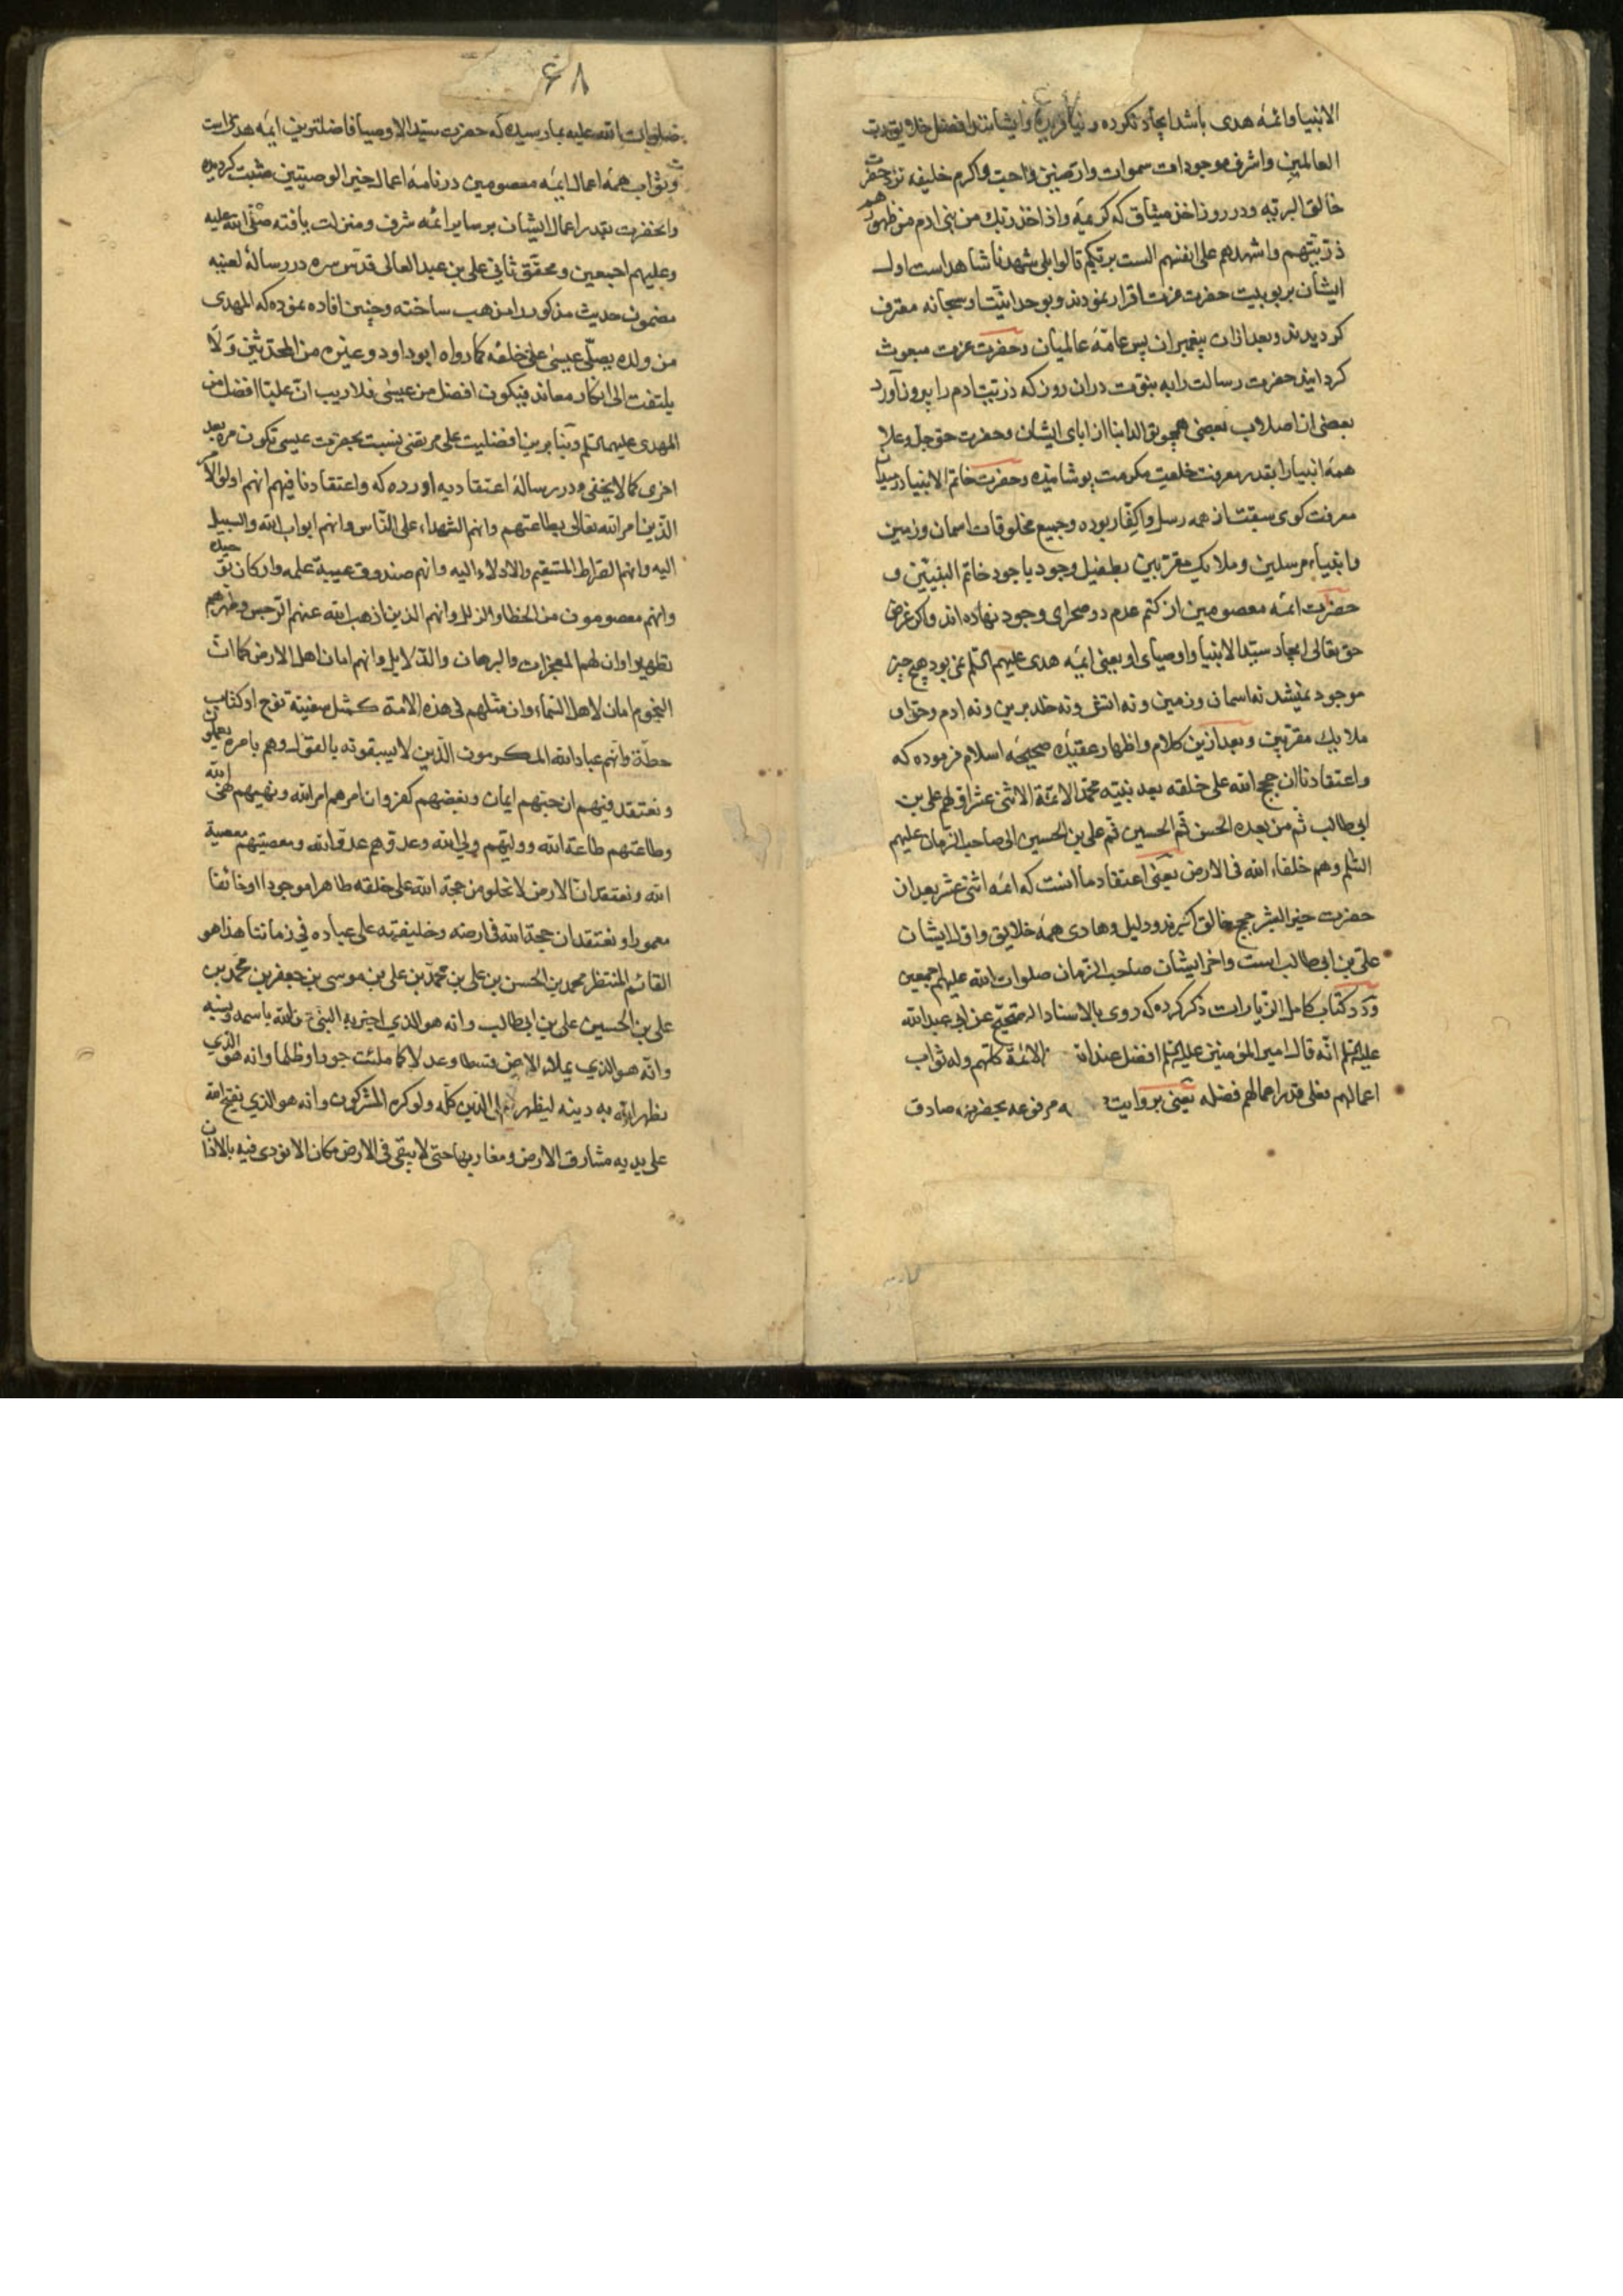 الانبیا وائمهٔ هدی باشد ایجاد نکرده و نیافریده و ایشانند افضل خلایق رب
العالمین واشرف موجودات سموات وارضین واحب واکرم خلیفه نزد حضرت
خالق البریه ودر روز اخذ میثاق که کریمهٔ واذ اخذ ربك من بنی ادم من ظهورهم
ذریتهم واشهدهم علی انفسهم الست بربکم قالوا بلی شهدنا شاهد است اول
ایشان بربوبیت حضرت عزت اقرار نمودند و بوحدانیت او سبحانه معترف
کردیدند وبعد ازان پیغمبران پس عامهٔ عالمیان وحضرت عزت مبعوث
کردانید حضرت رسالت را به نبوت دران روز که ذریت ادم را بیرون آورد
بعضی از اصلاب بعضی همچو توالد ابنا از ابای ایشان وحضرت حق جل وعلا
همهٔ انبیا را بقدر معرفت خلعت مکرمت پوشانیده وحضرت خاتم الانبیا در میدان
معرفت کوی سبقت از همه رسل واکفا ربوده وجمیع مخلوقات اسمان وزمین
وانبیاء مرسلین وملایك مقربین بطفیل وجود باجود خاتم النبیین و
حضرت ائمه معصومین از کتم عدم در صحرای وجود نهاده اند واکر غرض
حق تعالی ایجاد سید الانبیا واوصیای او یعنی ایمه هدی علیهم السلم نمی بود هیچ چیز
موجود نمیشد نه اسمان وزمین ونه اتش ونه خلد برین ونه ادم وحوا و
ملایك مقربین وبعد ازین کلام واظهار عقیدهٔ صحیحهٔ اسلام فرموده که
واعتقادنا ان حجج الله علی خلقه بعد نبیه محمد الائمة الاثنی عشر اولهم علی بن
ابی طالب ثم من بعده الحسن ثم الحسین ثم علی بن الحسین الی صاحب الزمان علیهم
السلم وهم خلفاء الله فی الارض یعنی اعتقاد ما انست که ائمه اثنی عشر بعد از
حضرت خیر البشر حجج خالق اکبرند ودلیل وهادی همهٔ خلایق واول ایشان
علی بن ابی طالب است واخر ایشان صاحب الزمان صلوات الله علیهم اجمعین
ودر کتاب کامل الزیارات ذکر کرده که روی بالاسناد الصحیح عن ابی عبد الله
علیه السلم انه قال امیر المؤمنین علیه السلم افضل عند الله الائمة کلهم وله ثواب
اعمالهم فعلی قدر اعمالهم فضله یعنی بروایت مرفوعه بحضرت صادق
۶۸
صلوات الله علیه بما رسیده که حضرت سید الاوصیا فاضلترین ایمه هدی است
وثواب همهٔ اعمال ایمه معصومین در نامهٔ اعمال خیر الوصیین مثبت کردیده
وانحضرت بقدر اعمال ایشان بر سایر ائمه شرف ومنزلت یافته صلی الله علیه
وعلیهم اجمعین ومحقق ثانی علی بن عبد العالی قدس سره در رسالهٔ لعنیه
مضمون حدیث مذکور را مذهب ساخته وچنین افاده نموده که المهدی
من ولده یصلی عیسی علی خلفه کما رواه ابو داود وغیره من المحدثین ولا
یلتفت الی انکار معاند فیکون افضل من عیسی فلا ریب ان علیا افضل من
المهدی علیهما السلم وبنا برین افضلیت علی مرتضی نسبت بحضرت عیسی تکون مرة بعد
اخری کما لا یخفی ودر رسالهٔ اعتقادیه اورده که واعتقادنا فیهم انهم اولو الامر
الذین امر الله تعالی بطاعتهم وانهم الشهداء علی الناس وانهم ابواب الله والسبیل
الیه وانهم الصراط المستقیم والادلاء الیه وانهم صندوق عیبة علمه وارکان توحیده
وانهم معصومون من الخطا والزلل وانهم الذین اذهب الله عنهم الرجس وطهرهم
تطهیرا وان لهم المعجزات والبرهان والدلایل وانهم امان اهل الارض کما ان
النجوم امان لاهل السماء وان مثلهم فی هذه الامة کمثل سفینة نوح او کتاب
حطة وانهم عباد الله المکرمون الذین لا یسبقونه بالقول وهم بامره یعملون
ونعتقد فیهم ان حبهم ایمان وبغضهم کفر وان امرهم امر الله ونهیهم نهی الله
وطاعتهم طاعة الله وولیهم ولی الله وعدوهم عدو الله ومعصیتهم معصیة
الله ونعتقد ان الارض لا تخلو من حجة الله علی خلقه ظاهرا موجودا او خائفا
مغمورا ونعتقد ان حجة الله فی ارضه وخلیفته علی عباده فی زماننا هذا هو
القائم المنتظر محمد بن الحسن بن علی بن محمد بن علی بن موسی بن جعفر بن محمد بن
علی بن الحسین علی بن ابی طالب وانه هو الذی اخبر به النبی عن الله باسمه ونسبه
وانه هو الذی یملأ الارض قسطا وعدلا کما ملئت جورا وظلما وانه هو الذی
یظهر الله به دینه لیظهر علی الدین کله ولو کره المشرکون وانه هو الذی یفتح الله
علی یدیه مشارق الارض ومغاربها حتی لا یبقی فی الارض مکان الا نودی فیه بالاذان